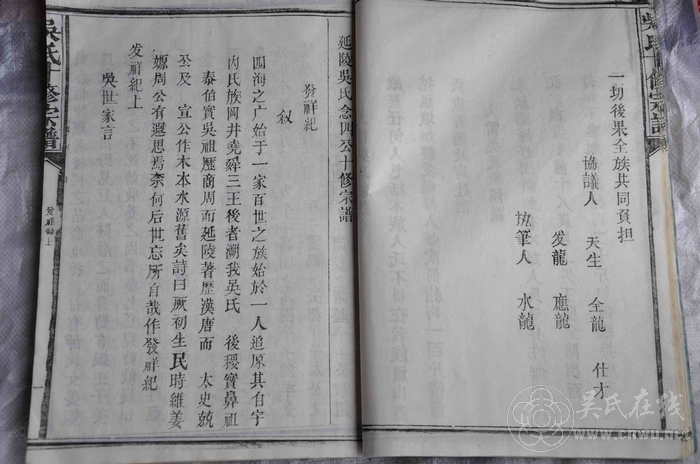 吳氏十修宗譜
一切後果全族共同負担
協議人 天生 全龍 仕才
发龍 應龍
执筆人 水龍
延陵吳氏念四公十修宗譜
發祥紀
叙
四海之广始于一家百世之族始於一人追原其自宇
内氏族罔非堯舜三王後者溯我吳氏 後稷實鼻祖
泰伯實吳祖歷商周而延陵著歷漢唐而 太史兢
至及 宣公作木本水源舊矣詩曰厥初生民時維姜
嫄周公有遐思焉奈何后世忘所自哉作發祥紀
发祥紀上
吳世家言
吳氏十修宗譜
發祥紀上
一
吴氏在线
www.cnwu.net